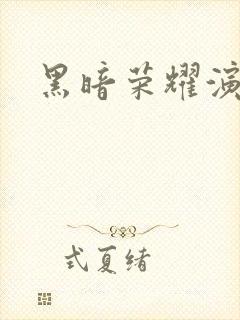 黑暗荣耀演
式夏绪